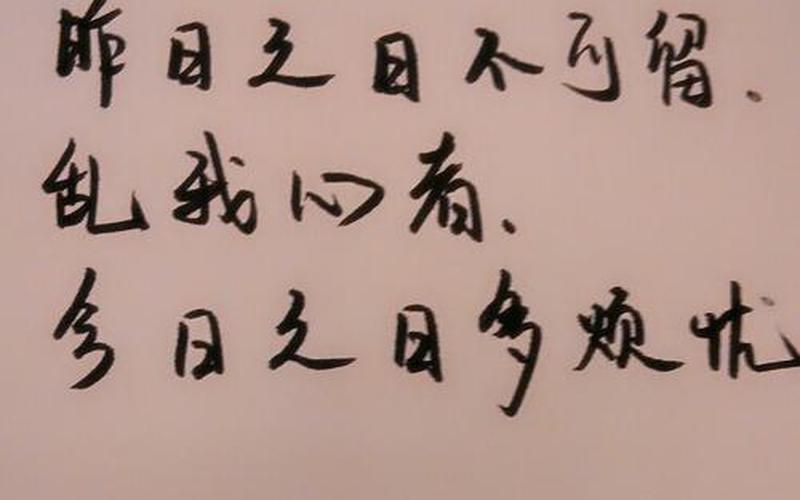 昨日之日不可留.
乱我心者.
今日之日多烦忧